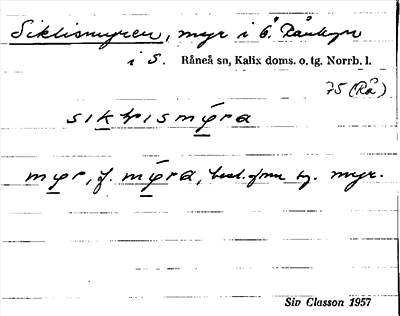 Siklismyren, myr i 6. Rånbyn
i S. Råneå sn, Kalix doms. o. tg. Norrb. l.
75 (Rå)
myr, f. mýra, best. form sg. myr.
Siv Classon 1957